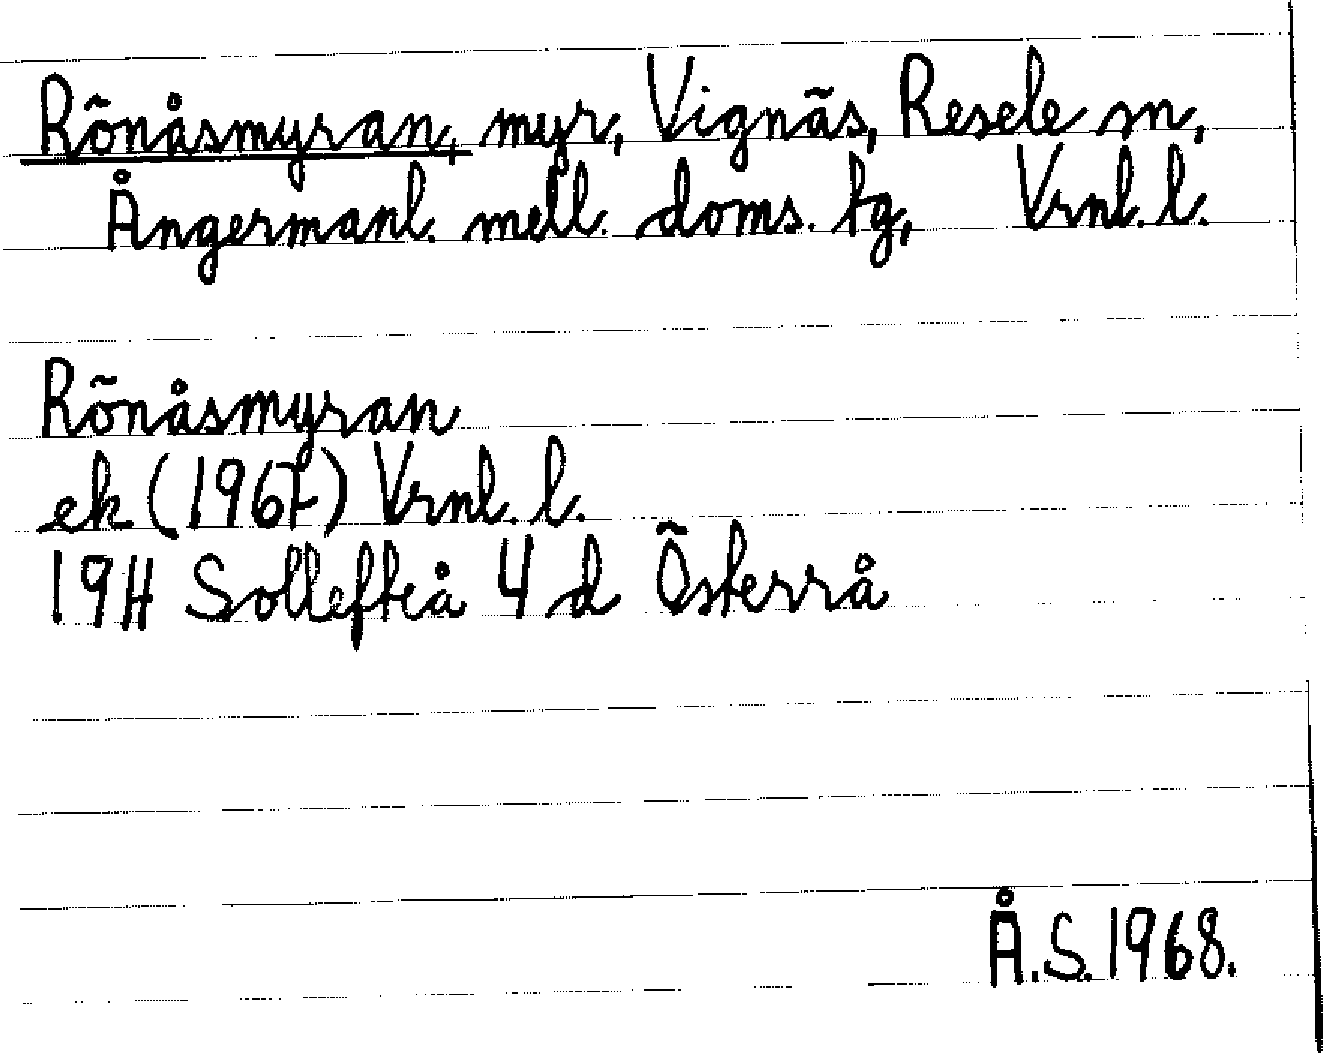 Rönåsmyran, myr, Vignäs, Resele sn,
Ångermanl. mell. doms. tg, Vrnl. l.
Rönåsmyran
ek (1967) Vrnl. l.
19H Sollefteå 4 d Österrå
Å.S. 1968.